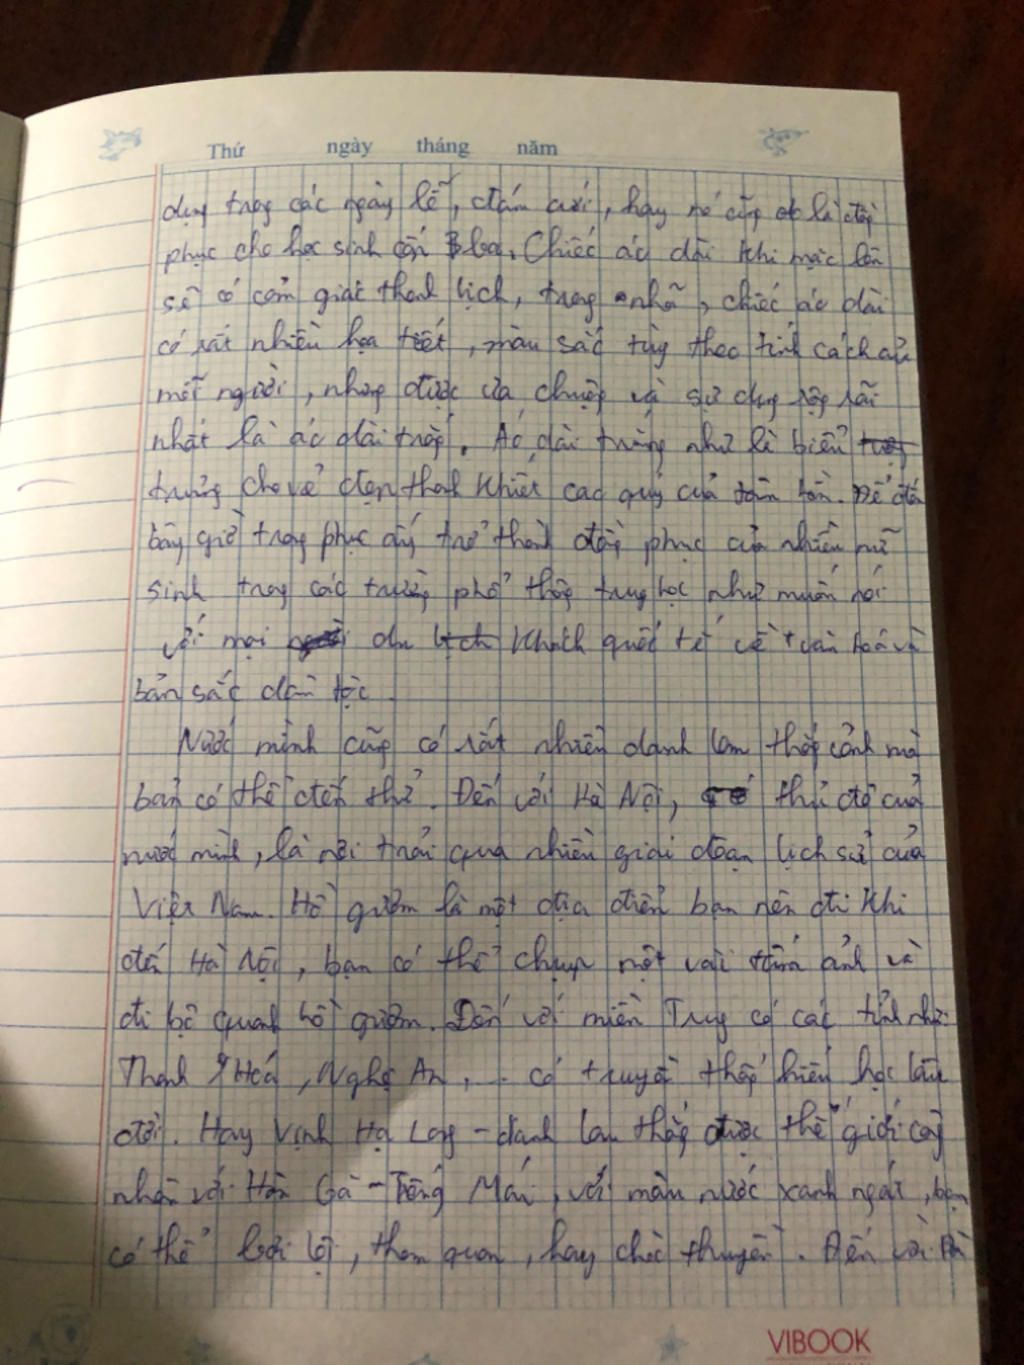 Thứ ngày tháng năm
dụng trong các ngày lễ, đám cưới, hay nó cũng là đồng
phục cho học sinh cấp 3. Chiếc áo dài khi mặc lên
sẽ có cảm giác thanh lịch, trang nhã, chiếc áo dài
có rất nhiều họa tiết, màu sắc tùy theo tính cách của
mỗi người, nhưng được ưa chuộng và sử dụng rộng rãi
nhất là áo dài trắng. Áo dài trắng như là biểu
trưng cho vẻ đẹp thanh khiết cao quý của tâm hồn. Để đến
bây giờ trang phục ấy trở thành đồng phục của nhiều nữ
sinh trong các trường phổ thông trung học như muốn nói
với mọi du khách quốc tế về văn hoá và
bản sắc dân tộc.
Nước mình cũng có rất nhiều danh lam thắng cảnh mà
bạn có thể đến thử. Đến với Hà Nội, thủ đô của
nước mình, là nơi trải qua nhiều giai đoạn lịch sử của
Việt Nam. Hồ gươm là một địa điểm bạn nên đi khi
đến Hà Nội, bạn có thể chụp một vài tấm ảnh và
đi bộ quanh hồ gươm. Đến với miền Trung có các tỉnh như
Thanh Hoá, Nghệ An, ... có truyền thống hiếu học lâu
đời. Hay Vịnh Hạ Long - danh lam thắng được thế giới công
nhận với Hòn Gà - Trống Mái, với màu nước xanh ngát, bạn
có thể bơi lội, tham quan, hay chèo thuyền. Đến với Đà
VIBOOK